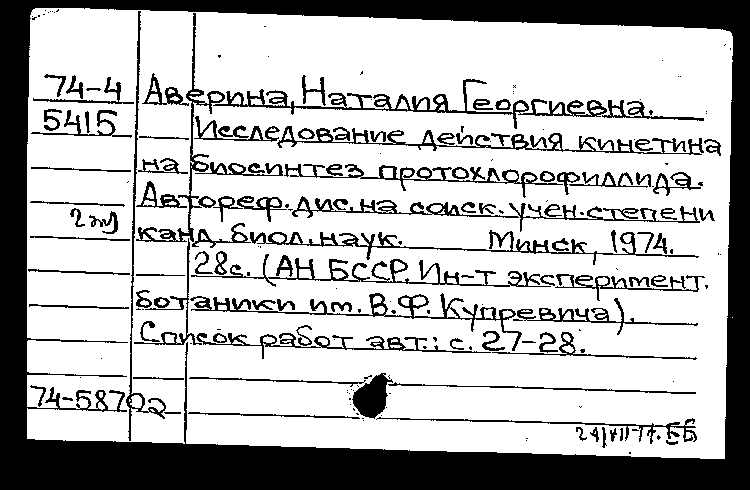 74-4 Аверина, Наталия Георгиевна.
5415 Исследование действия кинетина
на биосинтез протохлорофиллида.
Автореф. дис. на соиск. учен. степени
2 эк
канд. биол. наук. Минск, 1974.
28с. (АН БССР. Ин-т эксперимент.
ботаники им. В.Ф. Купревича).
Список работ авт.: с. 27-28.
74-58702